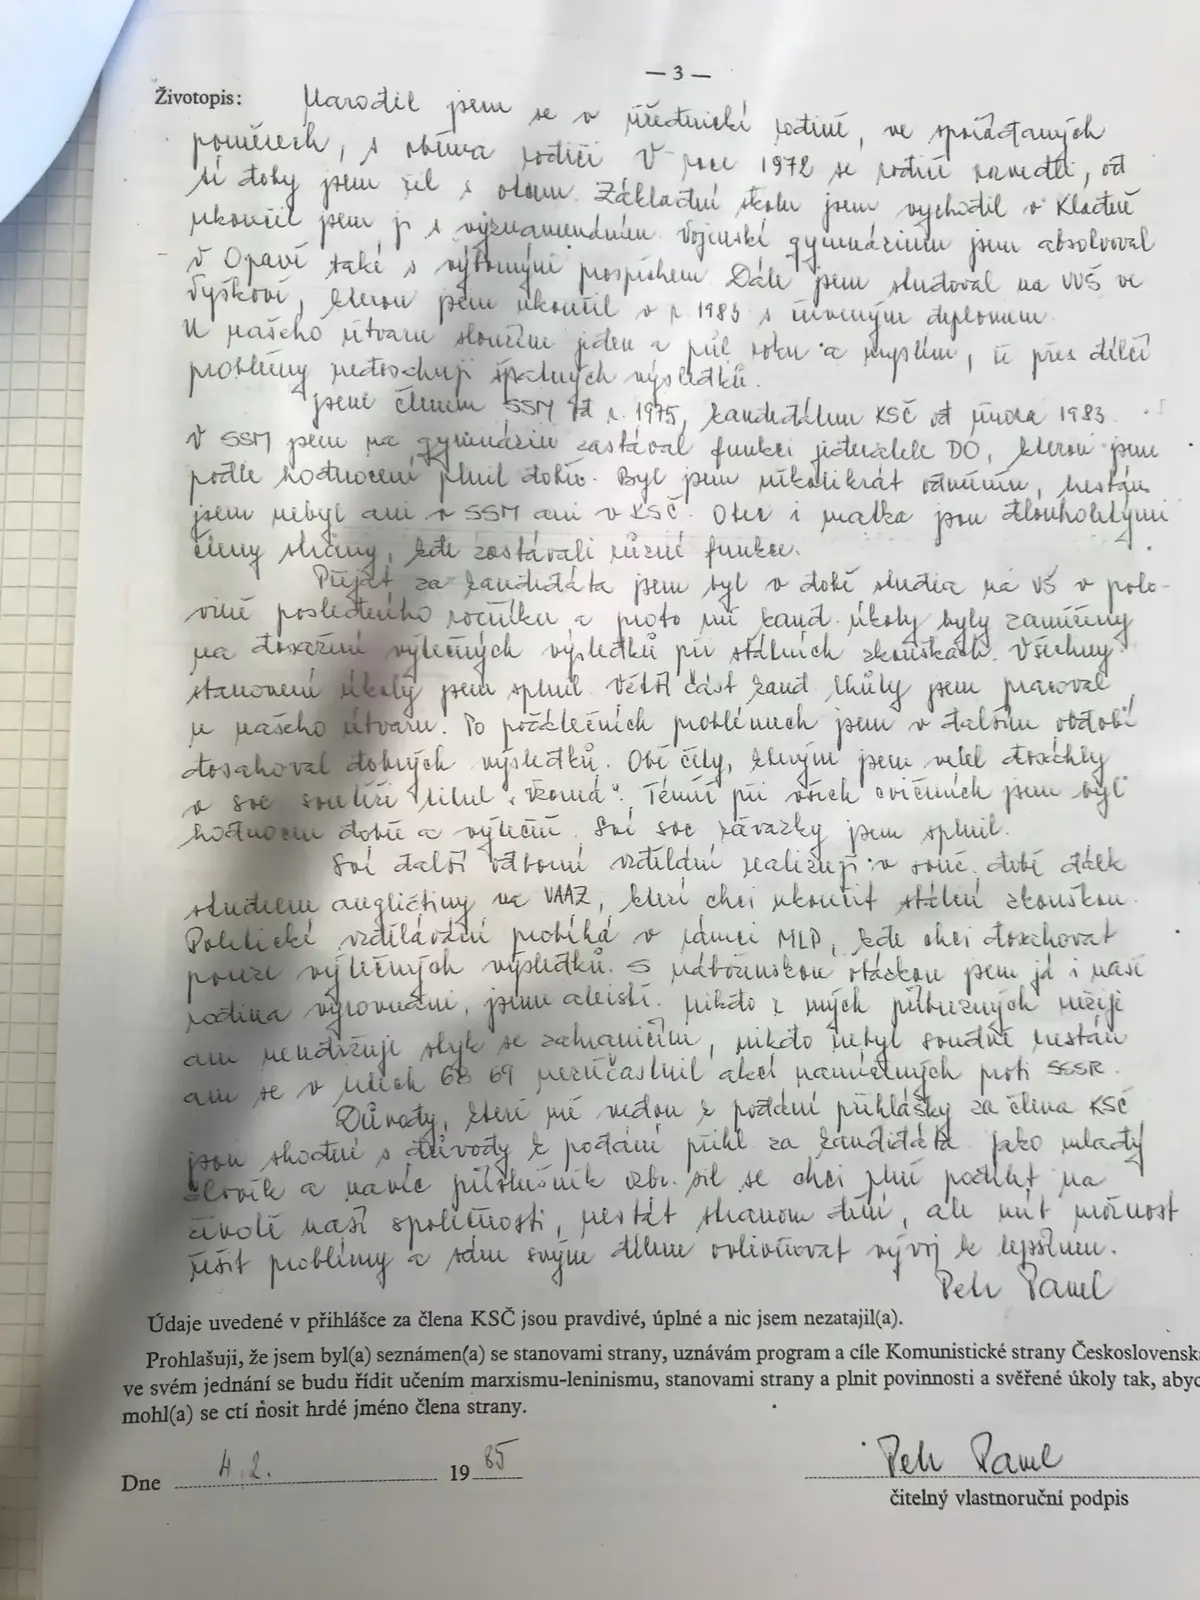 — 3 —
Životopis: Narodil jsem se v úřednické rodině, ve spořádaných
poměrech, s oběma rodiči. V roce 1972 se rodiče rozvedli, od
té doby jsem žil s otcem. Základní školu jsem vychodil v Kladně
ukončil jsem ji s vyznamenáním. Vojenské gymnázium jsem absolvoval
v Opavě také s výborným prospěchem. Dále jsem studoval na VVŠ ve
Vyškově, kterou jsem ukončil v r. 1983 s červeným diplomem.
U našeho útvaru sloužím jeden a půl roku a myslím, že přes dílčí
problémy nedosahuji špatných výsledků.
Jsem členem SSM od r. 1975, kandidátem KSČ od února 1983.
V SSM jsem na gymnáziu zastával funkci jednatele DO, kterou jsem
podle hodnocení plnil dobře. Byl jsem několikrát odměněn, trestán
jsem nebyl ani v SSM ani v KSČ. Otec i matka jsou dlouholetými
členy strany, kde zastávali různé funkce.
Přijat za kandidáta jsem byl v době studia na VŠ v polo-
vině posledního ročníku a proto mé kand. úkoly byly zaměřeny
na dosažení výtečných výsledků při státních zkouškách. Všechny
stanovené úkoly jsem splnil. Větší část kand. lhůty jsem pracoval
u našeho útvaru. Po počátečních problémech jsem v dalším období
dosahoval dobrých výsledků. Obě čety, kterým jsem velel dosáhly
v soc soutěži titul "Vzorná". Téměř při všech cvičeních jsem byl
hodnocen dobře a výtečně. Své soc závazky jsem splnil.
Své další odborné vzdělání realizuji v souč. době dálk
studiem angličtiny na VAAZ, které chci ukončit státní zkouškou.
Politické vzdělávání probíhá v rámci MLP, kde chci dosahovat
pouze výtečných výsledků. S náboženskou otázkou jsem já i naše
rodina vyrovnáni, jsme ateisté. Nikdo z mých příbuzných nežije
ani neudržuje styk se zahraničím, nikdo nebyl soudně trestán
ani se v letech 68 69 nezúčastnil akcí namířených proti SSSR.
Důvody, které mě vedou k podání přihlášky za člena KSČ
jsou shodné s důvody k podání přihl. za kandidáta. Jako mladý
člověk a navíc příslušník ozbr. sil se chci plně podílet na
životě naší společnosti, nestát stranou dění, ale mít možnost
řešit problémy a sám svým dílem ovlivňovat vývoj k lepšímu.
Petr Pavel
Údaje uvedené v přihlášce za člena KSČ jsou pravdivé, úplné a nic jsem nezatajil(a).
Prohlašuji, že jsem byl(a) seznámen(a) se stanovami strany, uznávám program a cíle Komunistické strany Československ
ve svém jednání se budu řídit učením marxismu-leninismu, stanovami strany a plnit povinnosti a svěřené úkoly tak, abyc
mohl(a) se ctí nosit hrdé jméno člena strany.
Dne 4. 2. 19 85 Petr Pavel
čitelný vlastnoruční podpis